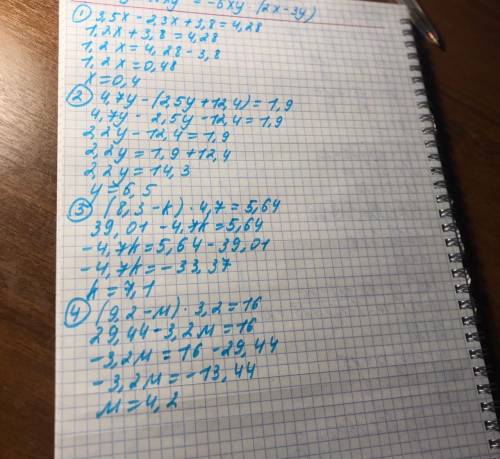 = -6xy (2x-3y)
① 3,5x - 2,3x + 3,8 = 4,28
1,2x + 3,8 = 4,28
1,2x = 4,28 - 3,8
1,2x = 0,48
x = 0,4
② 4,7y - (2,5y + 12,4) = 1,9
4,7y - 2,5y - 12,4 = 1,9
2,2y - 12,4 = 1,9
2,2y = 1,9 + 12,4
2,2y = 14,3
y = 6,5
③ (8,3 - k) · 4,7 = 5,64
39,01 - 4,7k = 5,64
-4,7k = 5,64 - 39,01
-4,7k = -33,37
k = 7,1
④ (9,2 - м) · 3,2 = 16
29,44 - 3,2м = 16
-3,2м = 16 - 29,44
-3,2м = -13,44
м = 4,2